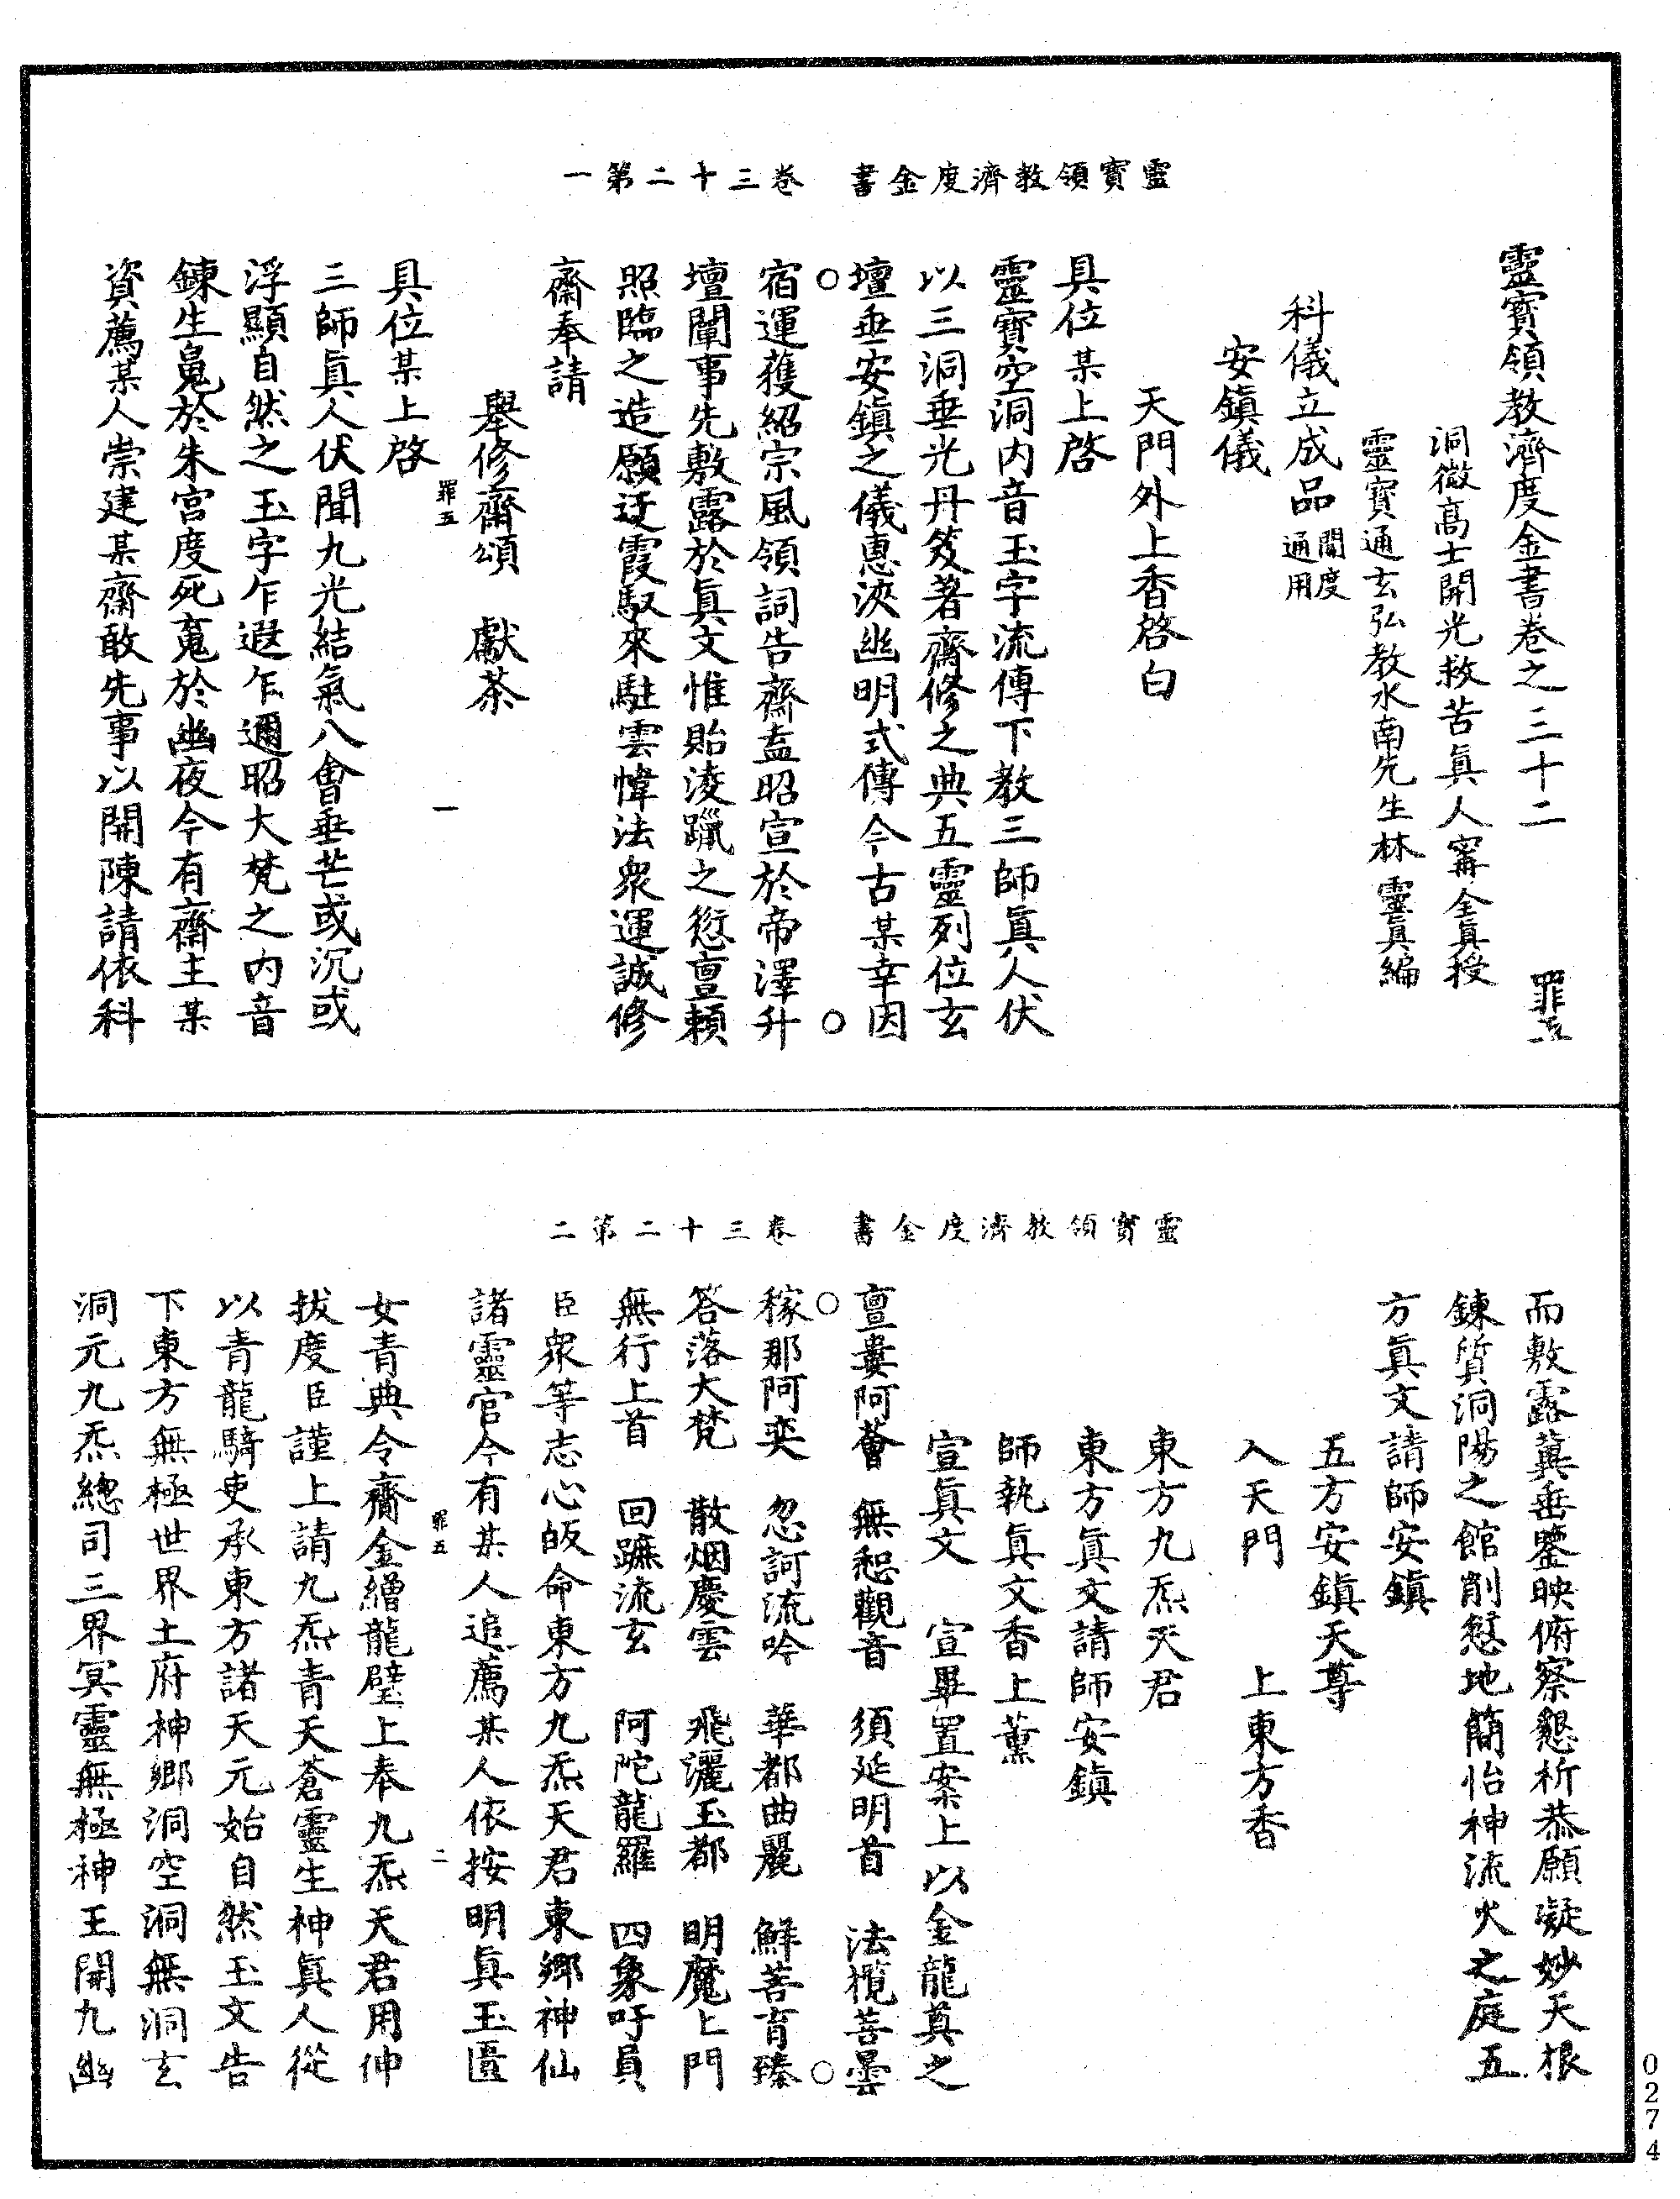 靈寶領教濟度金書　卷三十二第一
靈寶領教濟度金書卷之三十二　罪五
洞微高士開光救苦眞人甯全眞授
靈寶通玄弘教水南先生林靈眞編
科儀立成品開度通用
安鎭儀
天門外上香啓白
具位某上啓
靈寶空洞內音玉字流傳下教三師眞人伏
以三洞垂光丹笈著齋修之典五靈列位玄
壇垂安鎭之儀惠浹幽明式傳今古某幸因
宿運獲紹宗風領詞告齋壵昭宣於帝澤升
壇闡事先敷露於眞文惟貽淩躐之愆亶賴
照臨之造願迂霞馭來駐雲幃法衆運誠修
齋奉請
舉修齋頌　獻茶
罪五　一
具位某上啓
三師眞人伏聞九光結氣八會垂芒或沉或
浮顯自然之玉字乍遐乍邇昭大梵之內音
鍊生䰟於朱宮度死䰟於幽夜今有齋主某
資薦某人崇建某齋敢先事以開陳請依科
靈寶領教濟度金書　卷三十二第二
而敷露冀垂鑒映俯察懇祈恭願凝妙天根
鍊質洞陽之館削愆地簡怡神流火之庭五
方眞文請師安鎭
五方安鎭天尊
入天門　上東方香
東方九炁天君
東方眞文請師安鎭
師執眞文香上薰
宣眞文　宣畢置案上以金龍奠之
亶婁阿薈　無惒觀音　須延明首　法攬菩曇
稼那阿奕　忽訶流吟　華都曲麗　鮮菩育臻
答落大梵　散烟慶雲　飛灑玉都　明魔上門
無行上首　回蹠流玄　阿陀龍羅　四象吁員
臣衆等志心皈命東方九炁天君東鄉神仙
諸靈官今有某人追薦某人依按明眞玉匱
罪五　二
女青典令齎金繒龍璧上奉九炁天君用伸
拔度臣謹上請九炁青天蒼靈生神眞人從
以青龍騎吏承東方諸天元始自然玉文告
下東方無極世界土府神鄉洞空洞無洞玄
洞元九炁總司三界冥靈無極神王開九幽
0274